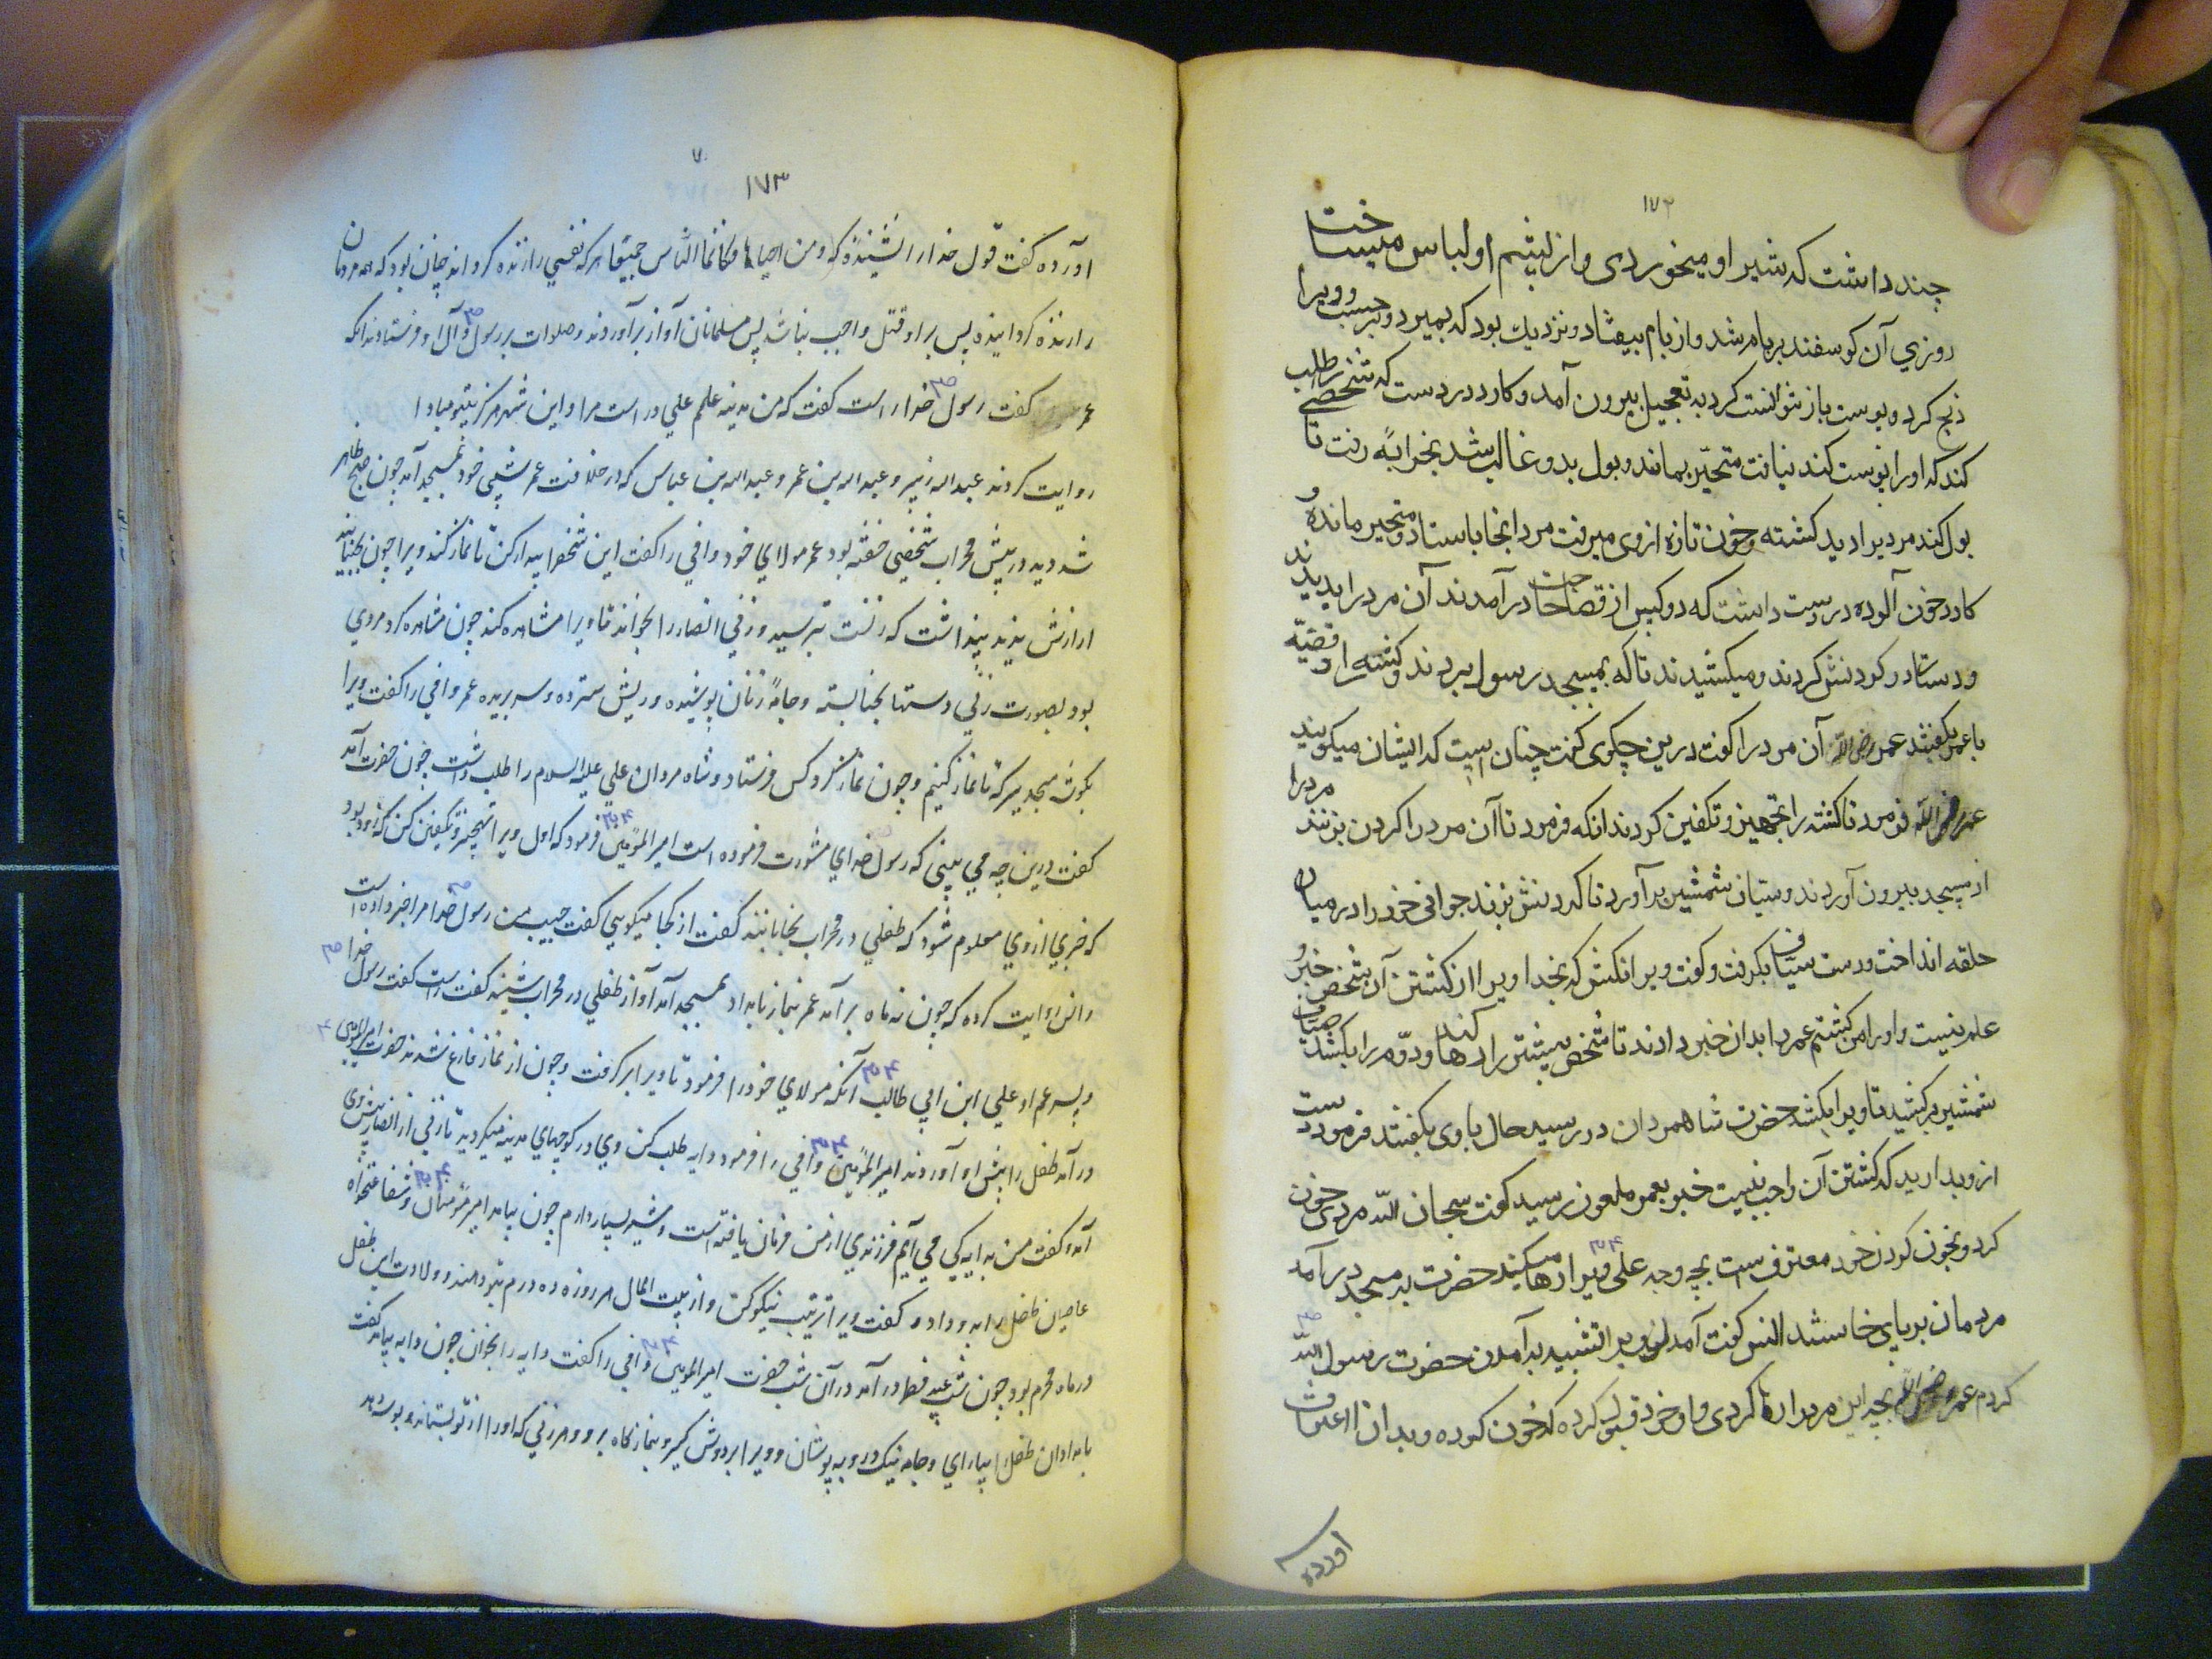 ١٧٢
چند داشت که شیر او میخوردی و از پشم او لباس میساخت
روزی آن کوسفند بر بام شد و از بام بیفتاد و نزدیك بود که بمیرد و ویرا
ذبح کرد و پوست باز نتوانست کرد به تعجیل بیرون آمد و کارد در دست که شخصی طلب
کند که او را پوست کند نیافت متحیّر بماند و بول بدو غالب شد بخرابه رفت تا
بول کند مردیرا دید کشته و خون تازه از وی میرفت مرد انجا باستاد و متحیر مانده و
کارد خون آلوده در دست داشت که دو کس از قضا حاجت درآمدند آن مرد را بدیدند
و دستار در کردنش کردند و میکشیدند تا که بمسجد رسول بردند و کشته را و قضیّه
با عمر بکفتند عمر رضی الله آن مرد را کفت درین چکوی کفت چنان است که ایشان میکویند
عمر رضی الله فرمود تا کشته را تجهیز و تکفین کردند انکه فرمود تا آن مرد را کردن بزنند مردرا
از مسجد بیرون آوردند و سیاف شمشیر برآورد تا کردنش بزند جوانی خود را در میان
حلقه انداخت و دست سیّاف بکرفت و کفت ویرا نکش که بخدا ویرا از کشتن آن شخص خبر و
علم نیست و او را من کشتم عمر را بدان خبر دادند تا شخص پیشتر را رها کند و دوّم را بکشد سیاف
شمشیر برکشید تا ویرا بکشد حضرت شاهمردان در رسید حال با وی بکفتند فرمود دست
از و بدارید که کشتن آن واجب نیست خبر بعمر ملعون رسید کفت سبحان الله مردی خون
کرد و بخون کردن خود معترف است بچه وجه علی ویرا رها میکند حضرت به مسجد درآمد
مردمان بر پای خاستند کفت آمدن ویرا تشبیه بآمدن حضرت رسول الله
کردم عمر رضی الله بچه این مرد را رها کردی و او خود قبول کرده که خون کرده و بدان اعتراف
اورده
١٧٣
آورده کفت قول خدا را نشنیدۀ که و من احیاها فکانما الناس جمیعًا هرکه نفسی را زنده کرداند چنان بود که همه مردمان
را زنده کردانیده پس بر او قتل واجب نباشد پس مسلمانان آواز برآوردند و صلوات بر رسول و آل او فرستادند انکه
عمر کفت رسول خدا راست کفت که من مدینه علم علی در است مرا و این شهر مرکز بی تو مبادا
روایت کردند عبدالله زبیر و عبدالله بن عمر و عبدالله بن عباس که در خلافت عمر شبی خود بمسجد آمد چون صبح ظاهر
شد دید در پیش محراب شخصی خفته بود عمر مولای خود وافی را کفت این شخص را بیدار کن تا نماز کند ویرا چون بجنبانید
ازارش بدید پنداشت که زنست بترسید و زنی انصار را بخواند تا ویرا مشاهده کند چون مشاهده کرد مردی
بود بصورت زنی دستها بحنا بسته و جامۀ زنان پوشیده و ریش سترده و سر بریده عمر وافی را کفت ویرا
بکوشۀ مسجد ببر که تا نماز کنیم و چون نماز بکرد کس فرستاد و شاه مردان علی علیه السلام را طلب داشت چون حضرت آمد
کفت درین چه می بینی که رسول خدای مشورت فرموده است امیر المؤمنین فرمود که اول ویرا تجهیز و تکفین کن که زود بود
که خبری از وی معلوم شود که طفلی در محراب بخاباننند کفت از کجا میکویی کفت حبیب من رسول خدا مرا خبر داده است
روایت کرده که چون نه ماه برآمد عمر بنماز بامداد بمسجد آمد آواز طفلی در محراب شنید کفت راست کفت رسول خدا
و پسر عم او علی ابن ابی طالب آنکه مولای خود را فرمود تا ویرا برکرفت و چون از نماز فارغ شدند حضرت امیر المؤمنین
درآمد طفل را پیش او آوردند امیر المؤمنین وافی را فرمود دایه طلب کن وی در کوچهای مدینه میکردید تا زنی از انصار پیش وی
آمد و کفت من به دایکی می آیم فرزندی از من فرمان یافته است و شیر بسیار دارم چون بیامد امیر مؤمنان و شفاعتخواه
عاصیان طفل را بدو داد و کفت ویرا تربیت نیکو کن و از بیت المال هر روزه ده درم بتو دهند و ولادت این طفل
در ماه محرم بود چون شب عید فطر درآمد در آن شب حضرت امیر المؤمنین وافی را کفت دایه را بخوان چون دایه بیامد کفت
بامدادان طفل را بیارای و جامه نیک در و پوشان و ویرا بر دوش کیر و بنمازکاه بر و هر زنی که او را از تو بستاند و بوسه دهد